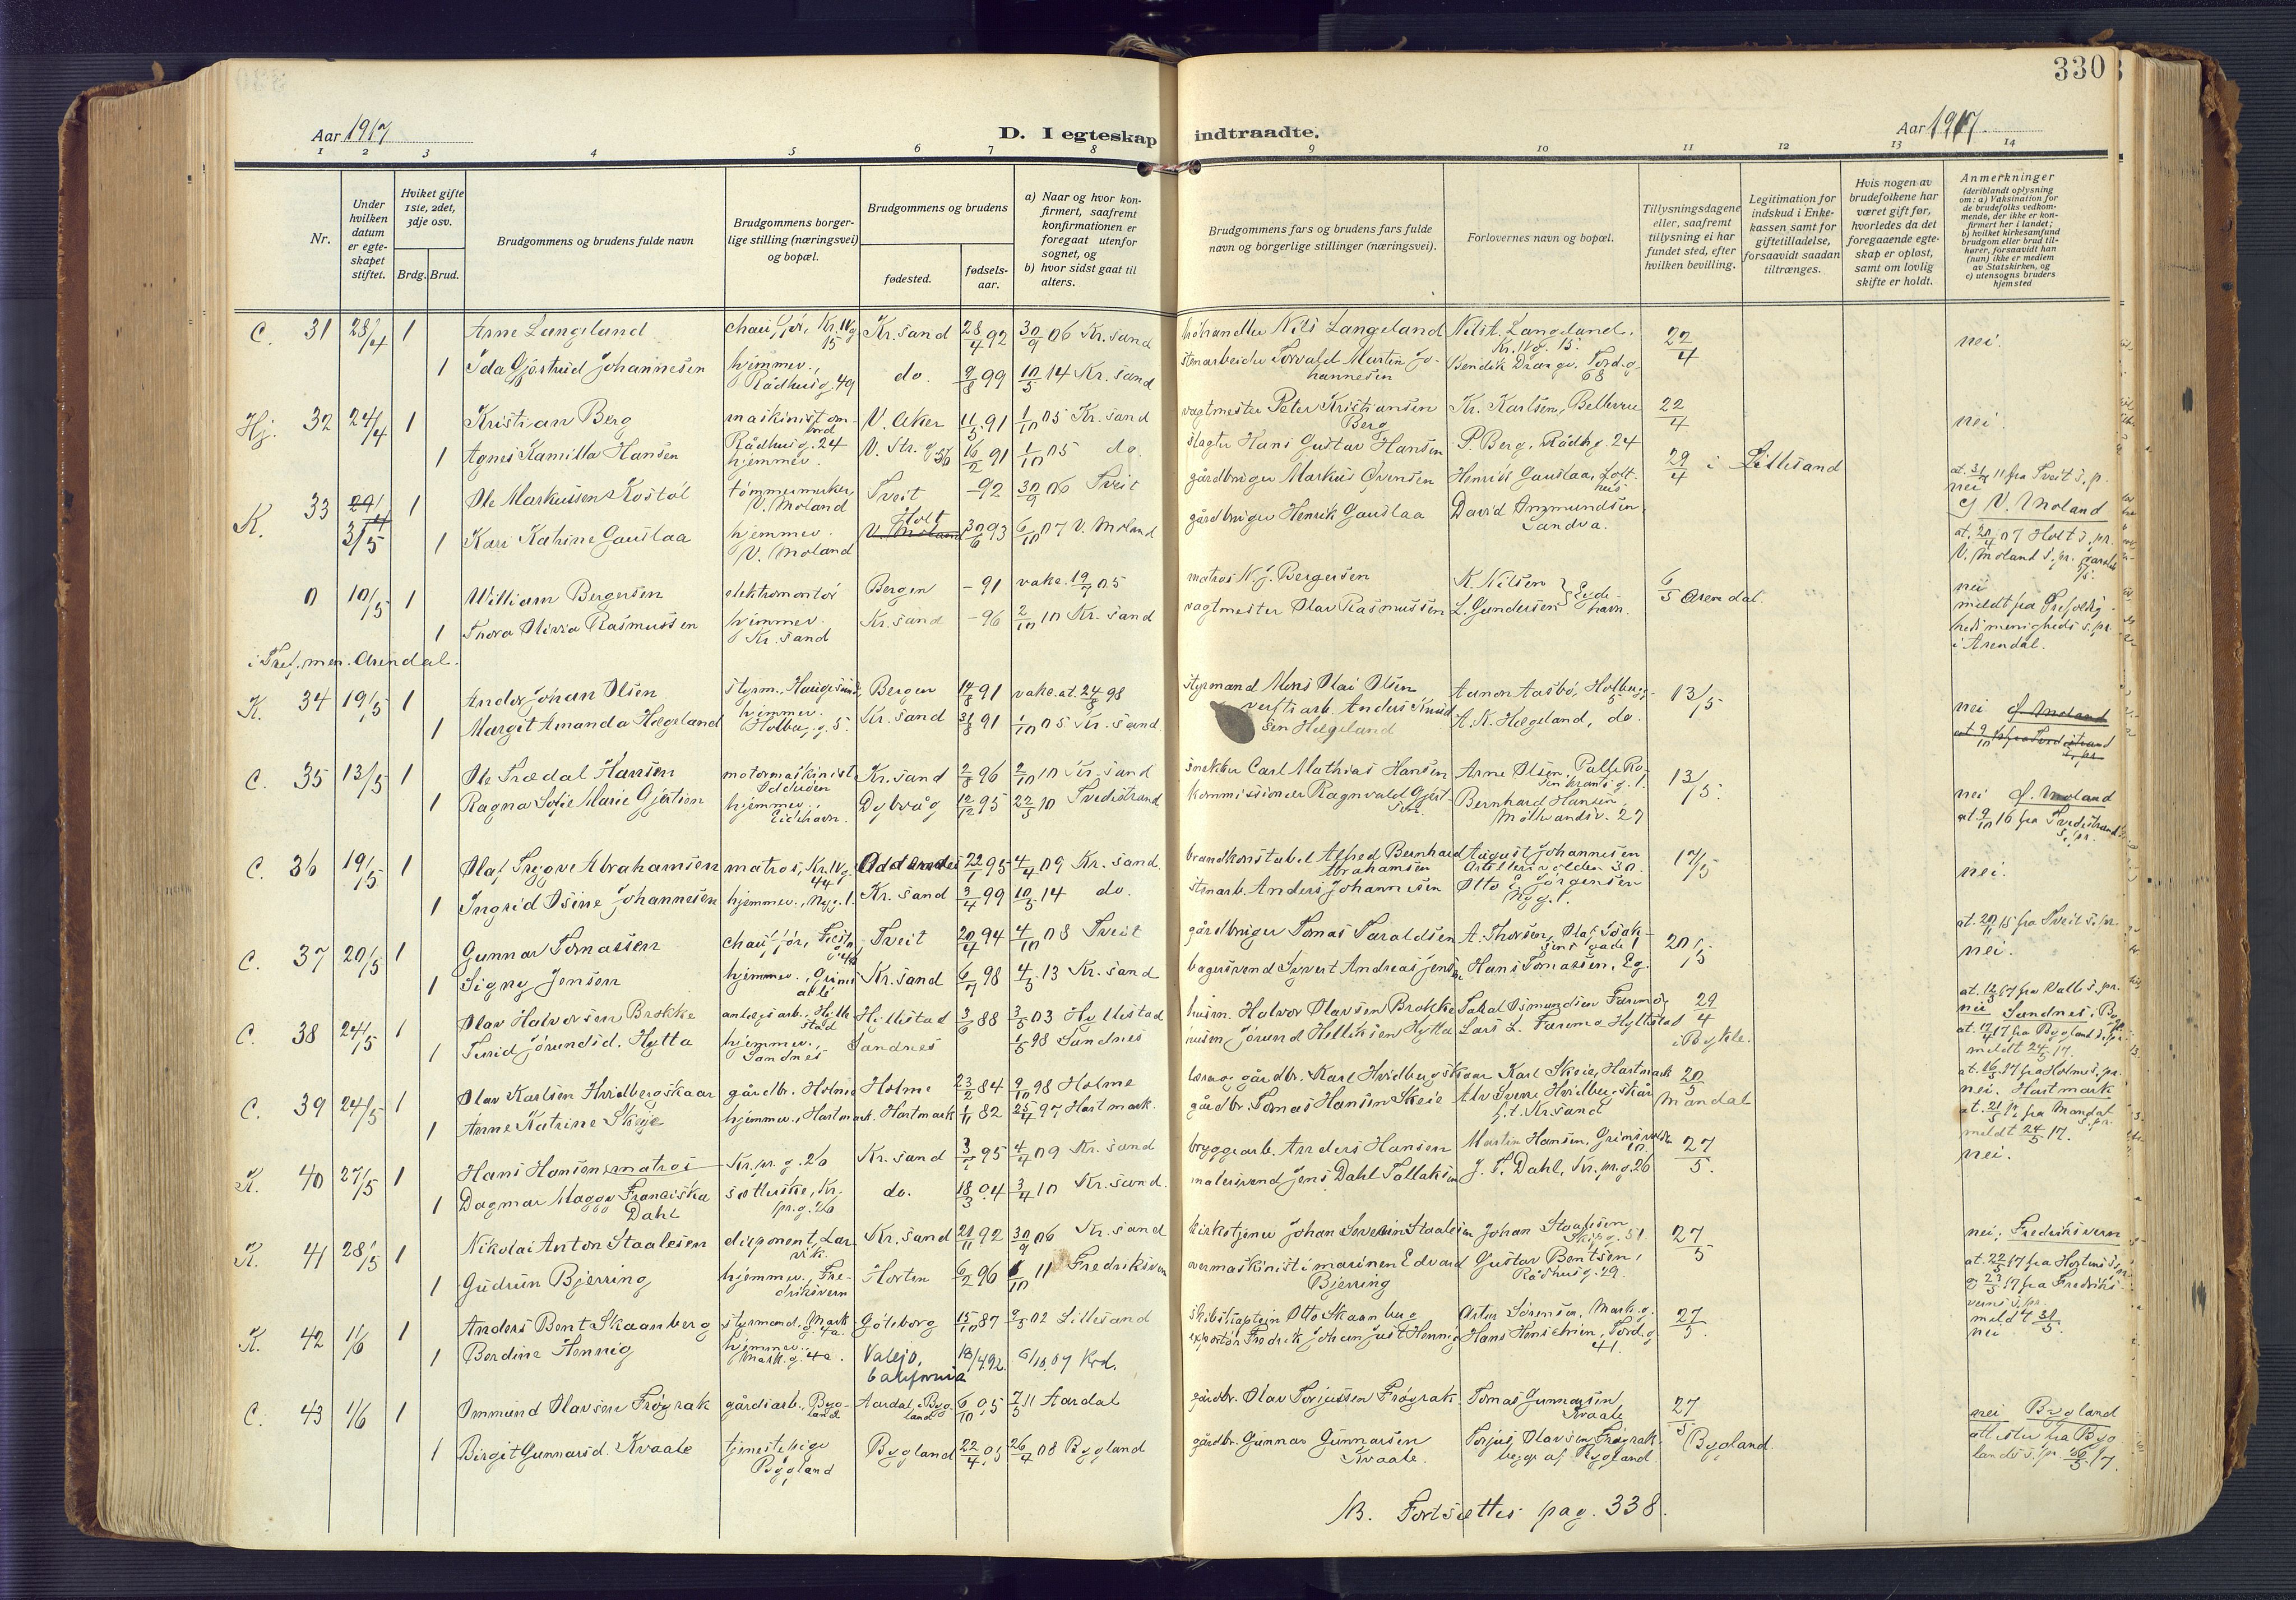 330
Aar 1917
D. I egteskap indtraadte.
Aar 1917.
1 2 3 4 5 6 7 8 9 10 11 12 13 14
Nr.
Under hvilken datum er egteskapet stiftet.
Hviket gifte 1ste, 2det, 3dje osv.
Brdg. Brud.
Brudgommens og brudens fulde navn
Brudgommens borgerlige stilling (næringsvei) og bopæl.
Brudgommens og brudens
fødested.
fødselsaar.
a) Naar og hvor konfirmert, saafremt konfirmationen er foregaat utenfor sognet, og
b) hvor sidst gaat til alters.
Brudgommens fars og brudens fars fulde navn og borgerlige stillinger (næringsvei).
Forlovernes navn og bopæl.
Tillysningsdagene eller, saafremt tillysning ei har fundet sted, efter hvilken bevilling.
Legitimation for indskud i Enkekassen samt for giftetilladelse, forsaavidt saadan tiltrænges.
Hvis nogen av brudefolkene har været gift før, hvorledes da det foregaaende egteskap er opløst, samt om lovlig skifte er holdt.
Anmerkninger
(deriblandt oplysning om: a) Vaksination for de brudefolks vedkommende, der ikke er konfirmert her i landet; b) hvilket kirkesamfund brudgom eller brud tilhører, forsaavidt han (hun) ikke er medlem av Statskirken, og c) utensogns bruders hjemsted
C. 31 28/4 1 Arne Langeland chaufför, Kr. IVg 15 Kr.sand 28/4 92 30/9 06 Kr.sand Nils Langeland Nils A. Langeland, Kr. IVg. 15. 22/4 nei.
1 Ida Gjöstrud Johannesen hjemmev., Rådhusg. 49 do. 9/8 99 10/5 14 Kr.sand stenarbeider Torvald Martin Johannesen Bendik Drange, Tord.g. 68
Hj. 32 24/4 1 Kristian Berg maskinist ombord Rådhusg. 24 V. Aker 11/5 91 1/10 05 Kr.sand vagtmester Peter Kristiansen Berg Kr. Karlsen, Bellevue 22/4 nei.
1 Agnes Kamilla Hansen hjemmev. V. Str. g 56 16/2 91 1/10 05 do. slagter Hans Gustav Hansen P. Berg, Rådhg. 24
K. 33 3/5 1 Ole Markussen Kostöl tömmermerker V. Moland Tveit -92 30/9 06 Tveit gårdbruger Markus Övensen Henrik Gauslaa, Holt 29/4 i Lillesand nei
1 Kari Katrine Gauslaa hjemmev. V. Moland V. Moland Holt 30/6 93 6/10 07 V. Moland gårdbruger Henrik Gauslaa David Ommundsen, Sandva. V. Moland
0 10/5 1 William Bergersen elektromontör Bergen -91 vakc. 19/7 05 matros N. J. Bergersen K. Nilsen 6/5 Arendal. nei
1 Thora Olivia Rasmussen hjemmev. Kr.sand Kr.sand -96 2/10 10 Kr.sand vagtmester Olav Rasmussen L. Gundersen Eydehavn. meldt fra Trefoldigheds menigheds s.pr. i Arendal.
i Tref. men. Arendal.
K. 34 19/5 1 Andor Johan Olsen styrm., Haugesund Bergen 14/8 91 vakc. at. 24/8 98 styrmand Mons Olai Olsen Aanon Aasbö, Holbergs. 5 13/5 nei
1 Margit Amanda Hægeland hjemmev. Holbg. g. 5. Kr.sand 31/8 91 1/10 05 Kr.sand verftsarb. Anders Knudsen Hægeland A. K. Hægeland, do.
C. 35 13/5 1 Ole Trædal Hansen motormaskinist Odderöen Kr.sand 2/8 96 2/10 10 Kr.sand snekker Carl Mathias Hansen Arne Olsen, Palle Rosenkrants g. 1. 13/5. nei Ø. Moland
1 Ragna Sofie Marie Gjertsen hjemmev., Eidehavn. Dybvåg 12/12 95 22/5 10 Tvedestrand kommissionær Ragnvald Gjertsen Bernhard Hansen, Möllevandsv. 27 at. 9/10 16 fra Tvedestrand s.pr.
C. 36 19/5 1 Olaf Trygve Abrahamsen matros, Kr. IVg. 44 Oddernes 22/1 95 4/4 09 Kr.sand brandkonstabel Alfred Bernhard Abrahamsen August Johannesen Artillerivolden 30. 17/5 nei.
1 Ingrid Osine Johannesen hjemmev., Nyg. 1. Kr.sand 3/4 99 10/5 14 do. stenarb. Anders Johannesen Otto E. Jörgensen Nyg. 1.
C. 37 20/5 1 Gunnar Tomassen chaufför, Tveit 20/4 94 4/10 08 Tveit gårdbruger Tomas Taraldsen A. Thorsen, 20/5 at. 20/11 15 fra Tveit s.pr. nei.
1 Signy Jensen hjemmev., Grims alle Kr.sand 6/7 98 4/5 13 Kr.sand bagersvend Syvert Andreas Jensen Hans Tomassen, Eg.
C. 38 24/5 1 Olav Halvorsen Brokke anlægsarb., Hyllestad Hyllestad 3/6 88 3/5 03 Hyllestad husm. Halvor Olavsen Brokke Salal Osmundsen Faremo 29/4 i Bykle. at. 12/5 17 fra Valle s.pr. nei Sandnes i Bygl.
1 Turid Jörundsd. Hytta hjemmev., Sandnes Sandnes 1/5 98 Sandnes Jörund Helliksen Hytta Lars L. Faremo Hyllestad at. 17/4 17 fra Bygland s.pr. meldt 24/5 17.
C. 39 24/5 1 Olav Karlsen Hvidbergskaar gårdbr. Holme Holme 23/2 84 9/10 98 Holme lærer og gårdbr. Karl Hvidbergskaar Karl Skeie, Hartmark 20/5 Mandal at. 16/5 17 fra Holme s.pr. nei. Hartmark
1 Anne Katrine Skeie hjemmev., Hartmark. Hartmark 1/11 82 25/4 97 Hartmark. gårdbr. Tomas Hansen Skeie Alv Sverre Hvidbergskår p.t. Krsand at. 21/5 17 fra Mandal s.pr. meldt 24/5 17.
K. 40 27/5 1 Hans Hansen, matros Kr.pr.g. 26 Kr.sand 3/1 95 4/4 09 Kr.sand bryggearb. Anders Hansen Martin Hansen, Grimsvolde 10. 27/5. nei.
1 Dagmar Maggy Franciska Dahl Kr. pr.g. 26 do. 18/3 04 3/4 10 Kr.sand. malersvend Jens Dahl Tallaksen J. T. Dahl, Kr.pr.g. 26
K. 41 28/5 1 Nikolai Anton Staalesen disponent, Larvik. Kr.sand 21/11 92 30/9 06 Kr.sand kirketjener Johan Severin Staalesen Johan Staalesen Skipg. 51 27/5 nei, Fredriksvern
1 Gudrun Bjerring hjemmev., Fredriksvern Horten 6/2 96 1/10 11 Fredriksvern overmaskinist i marinen Edvard Bjerring Gustav Bentsen, Rådhusg. 29. at. 22/5 17 fra Hortens s.pr. og 23/5 17 fra Fredriksverns s.pr. meldt 31/5.
K. 42 1/6 1 Anders Bent Skaanberg styrmand, Mark g. 4a. Göteborg 15/10 87 9/5 02 Lillesand skibskaptein Otto Skaanberg Artur Sörensen, Mark.g. 27/5. nei
1 Berdine Hennig hjemmev. Mark.g. 4a. Valejo, California 18/4 92. 6/10.07 Krd. exportör Fredrik Johan Just Hennig Hans Henschien, Tord.g 41.
C. 43 1/6 1 Ommund Olavsen Fröyrak gårdsarb., Bygland Aardal, Bygland 6/10 95 7/5 11 Aardal gårdbr. Olav Torjussen Fröyrak Tomas Gunnarsen, Kvaale 27/5 Bygland nei Bygland
1 Birgit Gunnarsd. Kvaale tjenestepige Bygland Bygland 22/4 95 26/4 08 Bygland gårdbr. Gunnar Gunnarsen Kvaale. Torjus Olavsen Fröyrak begge af Bygland. attester fra Byglands s.pr.
NB. Fortsættes pag. 338.